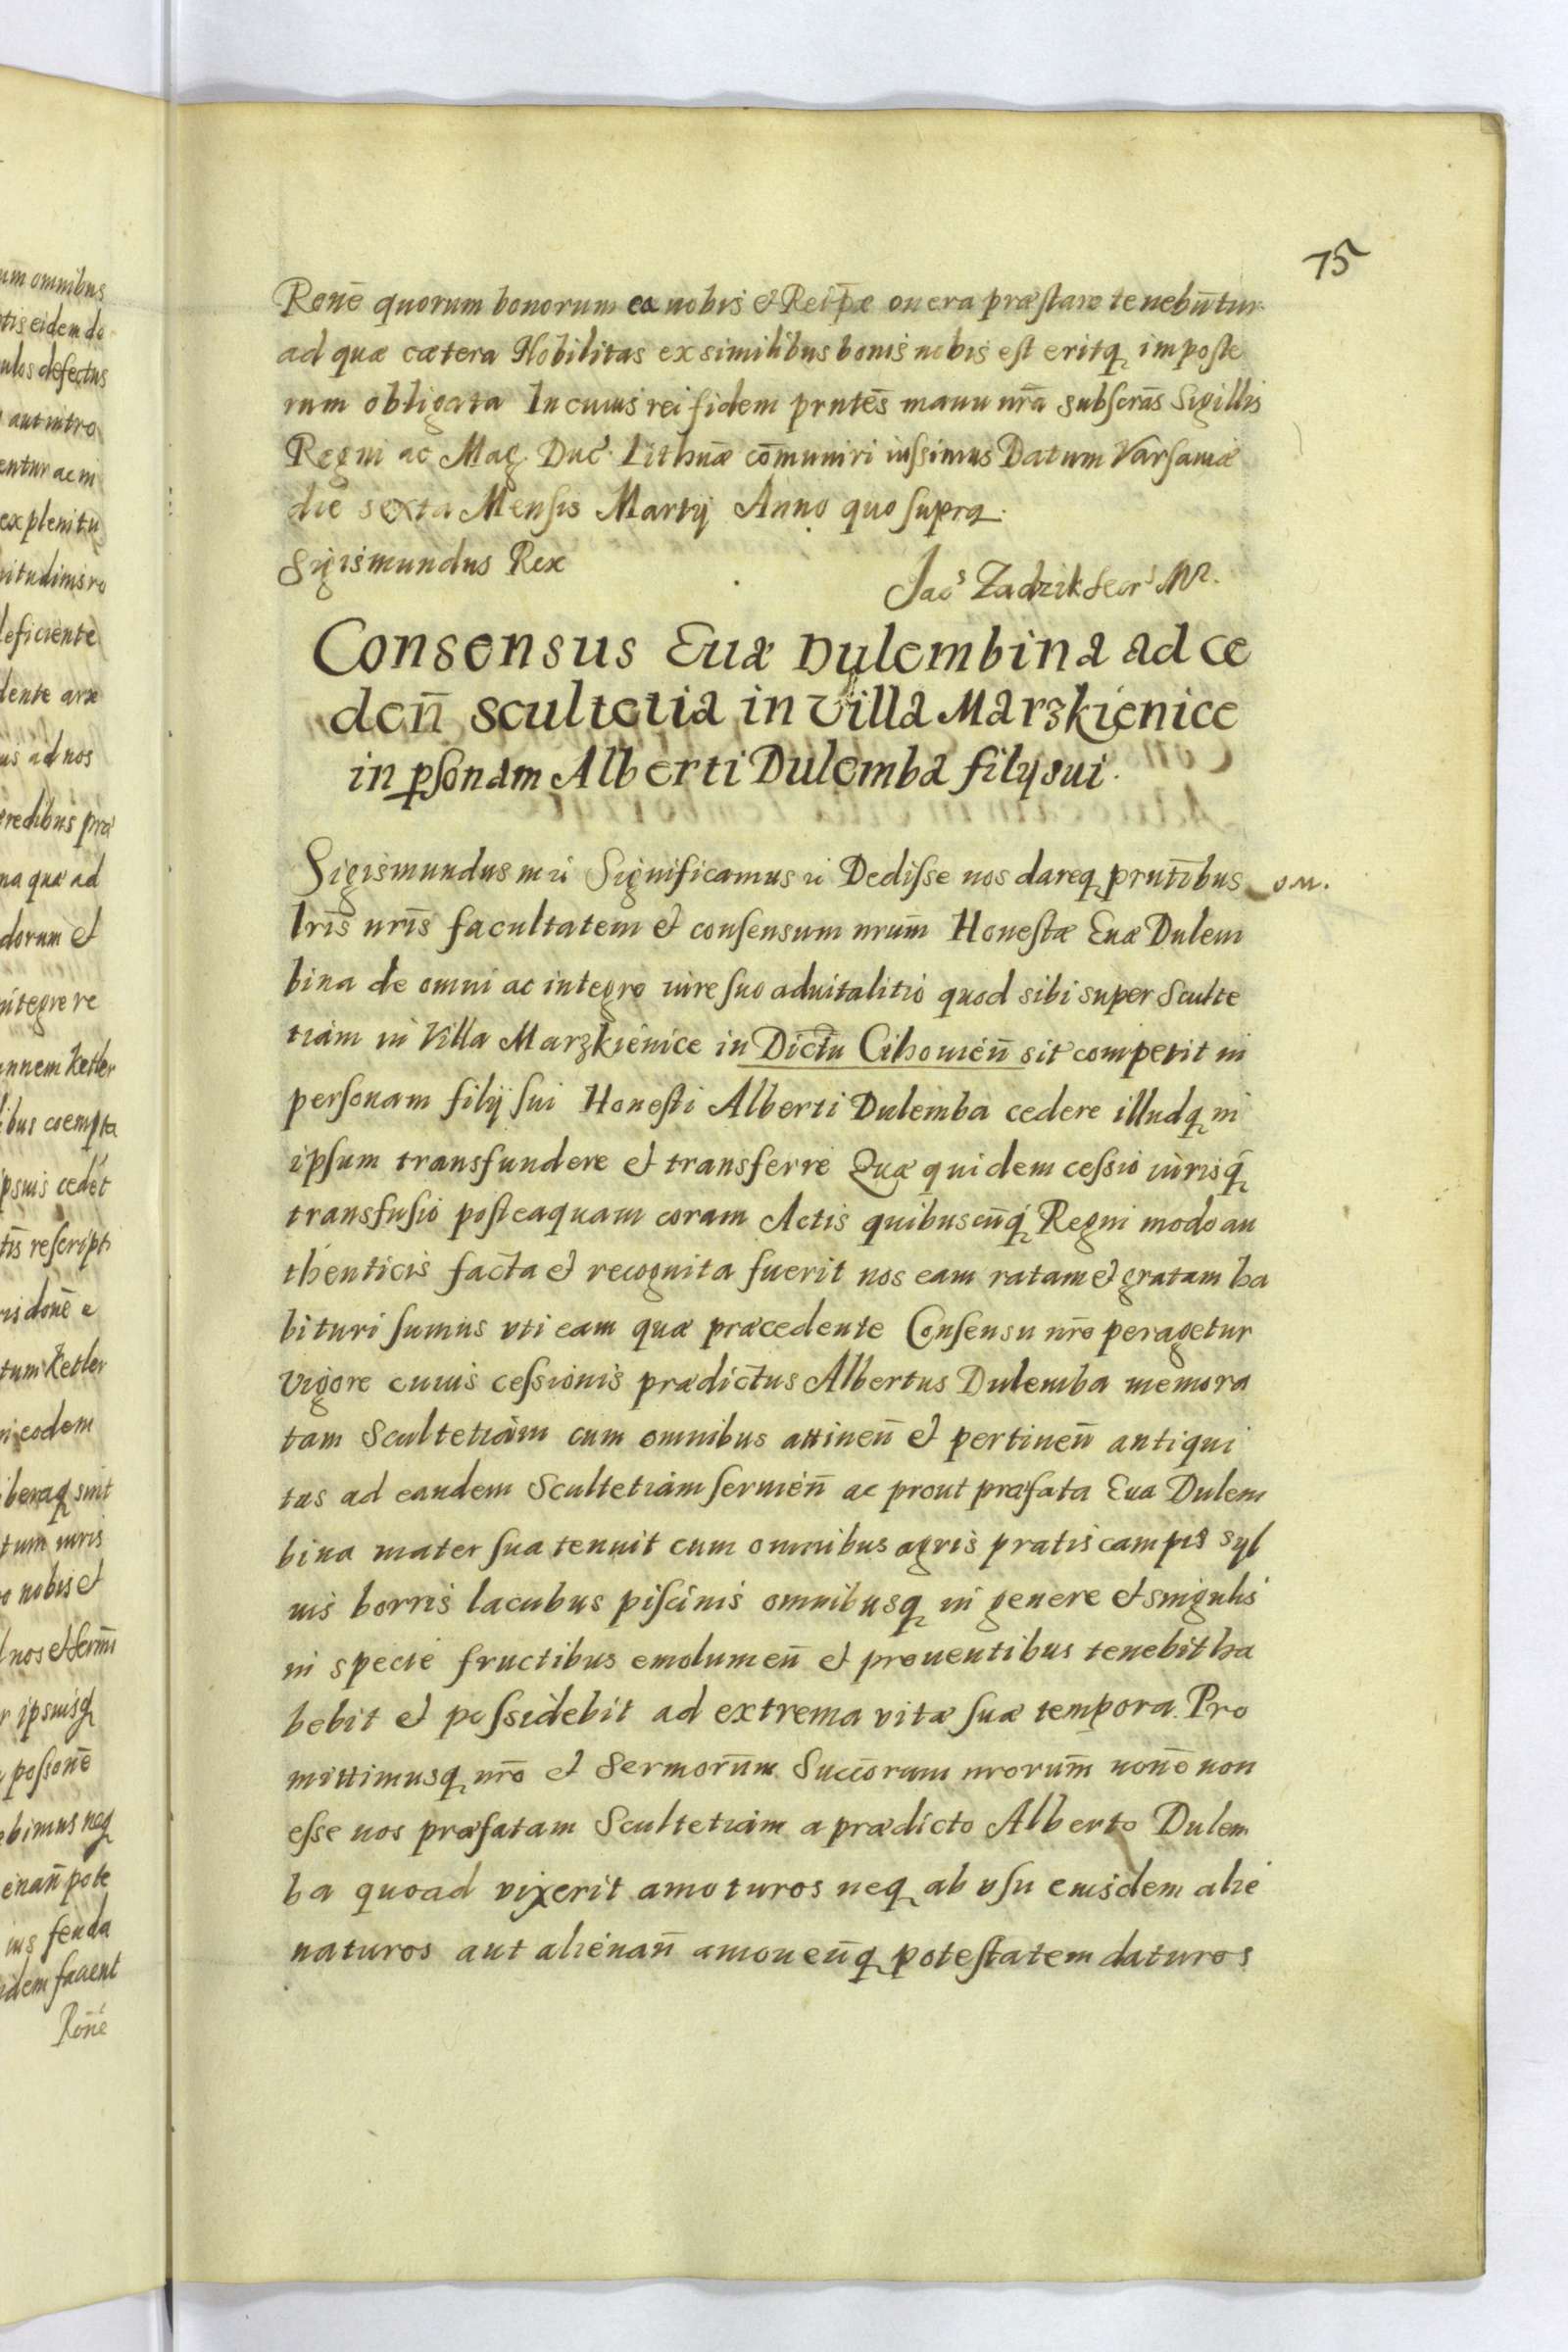 75
Ronē quorum bonorum ea nobis et Reip̄æ onera præstare tenebūtur
ad quæ cætera Nobilitas ex similibus bonis nobis est eritq imposte
rum obligata In cuius rei fidem prntēs manu nrā subscrās Sigillis
Regni ac Mag. Duc. Lithuæ cōmuniri iussimus Datum Varsauiæ
die sexta Mensis Martij Anno quo supra.
Sigismundus Rex
Jac⁹ Zadzik Secr M R.
Consensus Euæ Dulembina ad ce
den̄ scultetia in Villa Marzkienice
in psonam Alberti Dulemba filij sui.
Sigismundus Significamus Dedisse nos dareq prntībus om.
lris nris facultatem et consensum nrum̄ Honestæ Euæ Dulem
bina de omni ac integro iure suo aduitalitio quod sibi super Sculte
tiam in Villa Marzkienice in Dictu sit competit in
personam filij sui Honesti Alberti Dulemba cedere illudq in
ipsum transfundere et transferre Quæ quidem cessio iurisq
transfusio posteaquam coram Actis quibuscūq Regni modo au
thenticis facta et recognita fuerit nos eam ratam et gratam ha
bituri sumus vti eam quæ præcedente Consensu nrō peragetur
vigore cuius cessionis prædictus Albertus Dulemba memora
tam Scultetiam cum omnibus attinen̄ et pertinen̄ antiqui
tus ad eandem Scultetiam seruien̄ ac prout præfata Eua Dulem
bina mater sua tenuit cum omnibus agris pratis campis syl
uis borris lacubus piscinis omnibusq in genere et singulis
in specie fructibus emolumen̄ et prouentibus tenebit ha
bebit et possidebit ad extrema vitæ suæ tempora. Pro
mittimusq nrō et Sermorūm Succorum nrorum̄ noñe non
esse nos præfatam Scultetiam a prædicto Alberto Dulem
ba quoad vixerit amoturos neq ab vsu eiusdem alie
naturos aut alienan̄ amouen̄q potestatem daturos